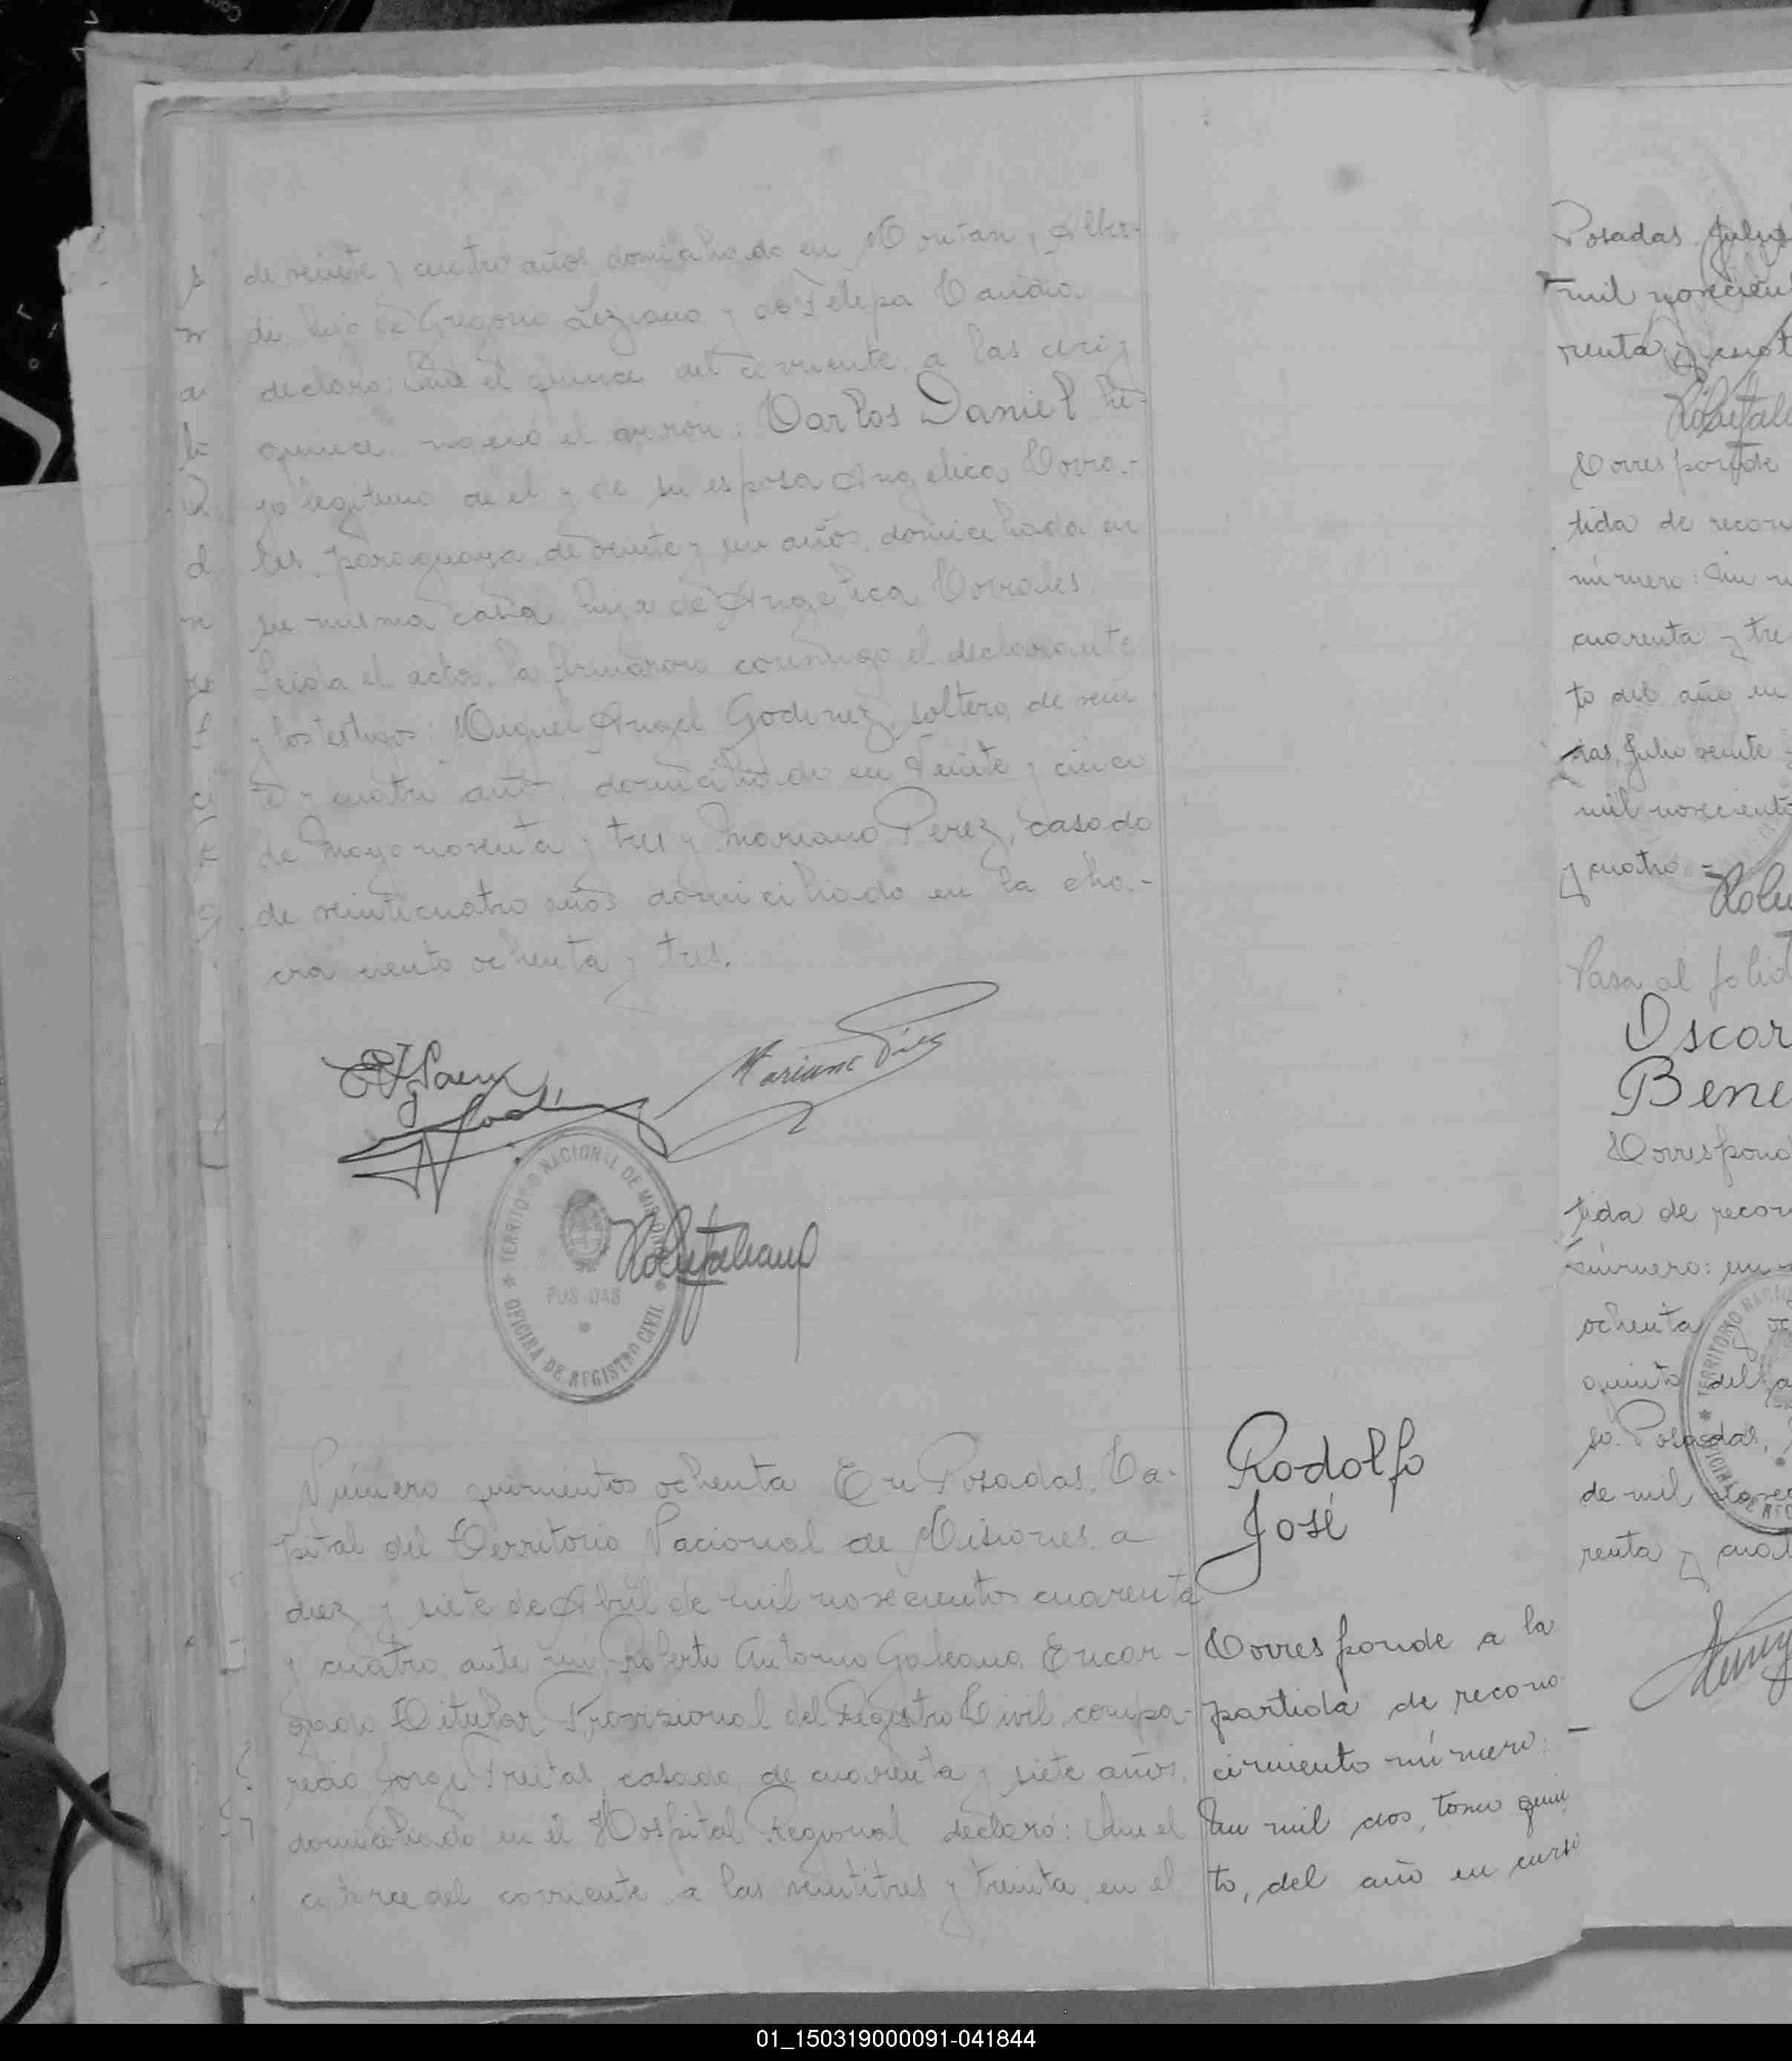 de veinte y cuatro años domiciliado en Alber-
di, hijo de Gregorio Lezcano y de Felipa
declaró: Que el quince del corriente a las diez
quince nació el varón: Carlos Daniel hi-
jo legitimo de el y de su esposa Angelica Corra-
les, paraguaya, de veinte y un años, domiciliada en
su misma casa, hija de Angelica Corrales.
Leida el acta, la firmaron conmigo el declarante
y los testigos: Miguel Angel Godinez, soltero, de vein
te y cuatro años, domiciliado en Veinte y cinco
de Mayo noventa y tres y Mariano Perez, casado
de veinticuatro años domiciliado en la cha-
cra ciento ochenta y tres.
Mariano Pérez
TERRITORIO NACIONAL DE MISIONES
POSADAS
OFICINA DE REGISTRO CIVIL
Número quinientos ochenta En Posadas, Ca-
pital del Territorio Nacional de Misiones, a
diez y siete de Abril de mil novecientos cuarenta
y cuatro, ante mí, Roberto Antonio Galeano, Encar-
gado Titular Provisional del Registro Civil, compa-
reció Jorge Freitas, casado, de cuarenta y siete años,
domiciliado en el Hospital Regional declaró: Que el
catorce del corriente a las veintitres y treinta, en el
Rodolfo
José
Corresponde a la
partida de recono
cimiento número: -
Un mil dos, tomo quin
to, del año en curso
Posadas, Julio
mil novecien
renta y cuat
Corresponde
tida de recon
número: Un
cuarenta y tre
to del año en
das, Julio veinte
mil novecientos
y cuatro =
Pasa al folio
Oscar
Bene
Correspond
tida de recon
número: un
ochenta y oc
quinto del a
so. Posadas,
de mil novec
renta y cuat
01_150319000091-041844